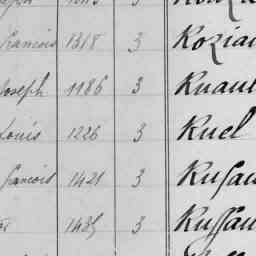 francois 1318 3 Kozian
Joseph 1186 3 Knaul
Louis 1226 3 Kuel
francois 1421 3 Kusau
1435 3 Kussau